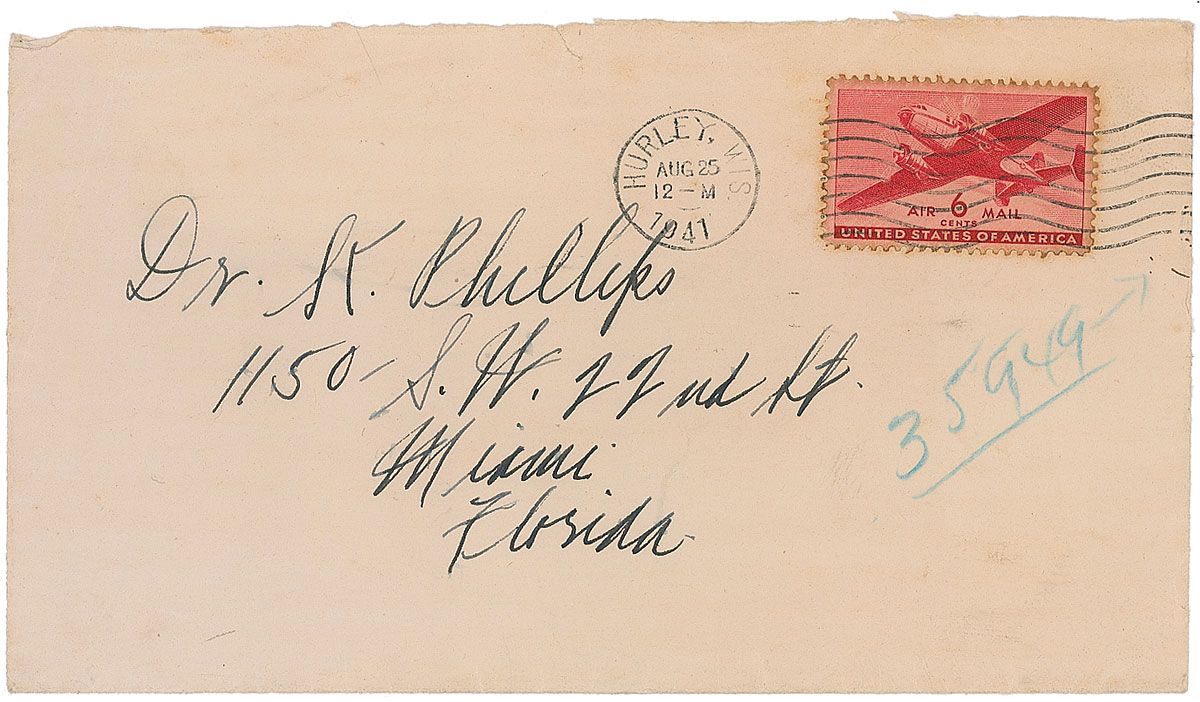 HURLEY, WIS.
AUG 25
12 – M
1941
AIR 6 MAIL
CENTS
UNITED STATES OF AMERICA
Dr. K. Phillips
1150 - S. W. 22nd St.
Miami
Florida
35949